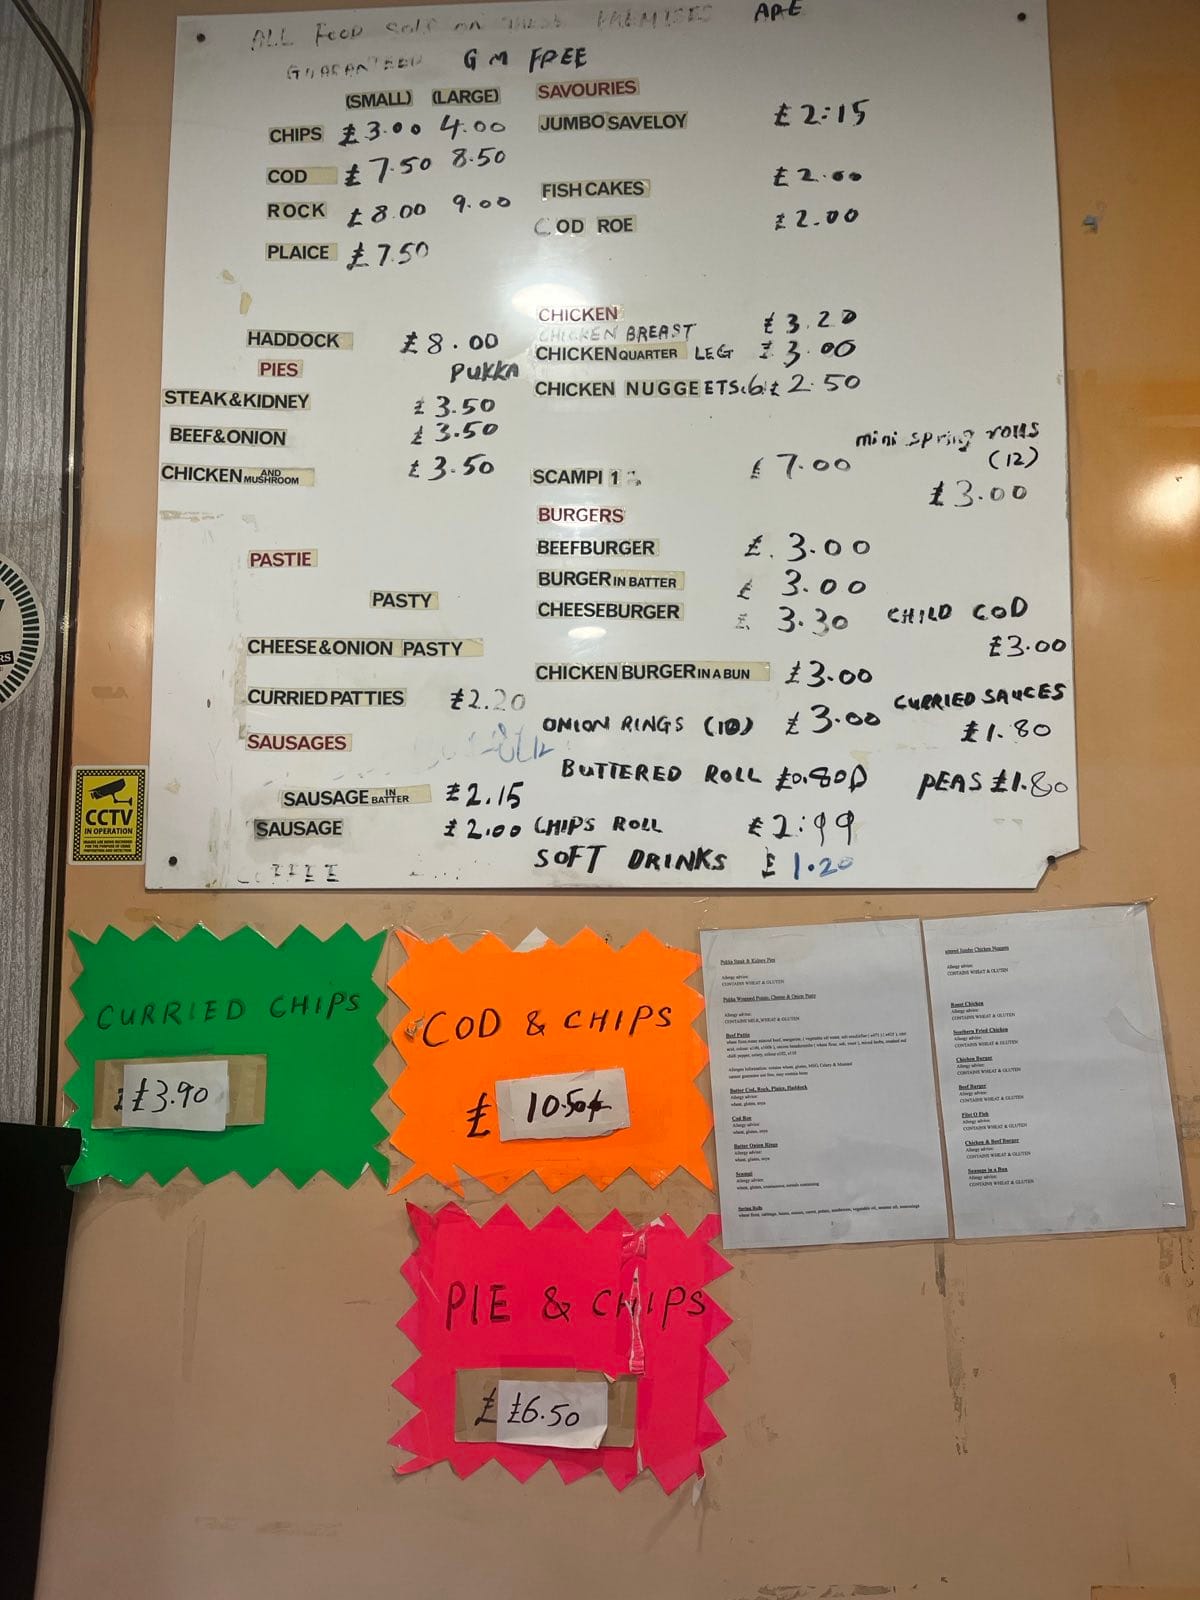 ALL FOOD SOLD ON THESE PREMISES ARE
GUARANTEED GM FREE
(SMALL) (LARGE)
CHIPS £3.00 4.00
COD £7.50 8.50
ROCK £8.00 9.00
PLAICE £7.50
HADDOCK £8.00
PIES PUKKA
STEAK & KIDNEY £3.50
BEEF & ONION £3.50
CHICKEN AND MUSHROOM £3.50
PASTIE
PASTY
CHEESE & ONION PASTY
CURRIED PATTIES £2.20
SAUSAGES
SAUSAGE IN BATTER £2.15
SAUSAGE £2.00
SAVOURIES
JUMBO SAVELOY £2:15
FISH CAKES £2.00
COD ROE £2.00
CHICKEN
CHICKEN BREAST £3.20
CHICKEN QUARTER LEG £3.00
CHICKEN NUGGEETS 6 £2.50
SCAMPI £7.00
BURGERS
BEEFBURGER £.3.00
BURGER IN BATTER £3.00
CHEESEBURGER £3.30
CHICKEN BURGER IN A BUN £3.00
ONION RINGS (10) £3.00
BUTTERED ROLL £0.80p
CHIPS ROLL £2:99
SOFT DRINKS £1.20
mini spring rolls
(12)
£3.00
CHILD COD
£3.00
CURRIED SAUCES
£1.80
PEAS £1.80
CCTV
IN OPERATION
CURRIED CHIPS
£3.90
COD & CHIPS
£ 10.50
PIE & CHIPS
£ £6.50
Pukka Steak & Kidney Pies
Allergy advice:
CONTAINS WHEAT & GLUTEN
Pukka Wrapped Potato, Cheese & Onion Pasty
Allergy advice:
CONTAINS MILK, WHEAT & GLUTEN
Beef Pattie
Batter Cod, Rock, Plaice, Haddock
Allergy advice:
wheat, gluten, soya
Cod Roe
Allergy advice:
wheat, gluten, soya
Batter Onion Rings
Allergy advice:
wheat, gluten, soya
Scampi
Allergy advice:
Spring Rolls
Jumbo Chicken Nuggets
Allergy advice:
CONTAINS WHEAT & GLUTEN
Roast Chicken
Allergy advice:
CONTAINS WHEAT & GLUTEN
Southern Fried Chicken
Allergy advice:
CONTAINS WHEAT & GLUTEN
Chicken Burger
Allergy advice:
CONTAINS WHEAT & GLUTEN
Beef Burger
Allergy advice:
CONTAINS WHEAT & GLUTEN
Filet O Fish
Allergy advice:
CONTAINS WHEAT & GLUTEN
Chicken & Beef Burger
Allergy advice:
CONTAINS WHEAT & GLUTEN
Sausage in a Bun
Allergy advice:
CONTAINS WHEAT & GLUTEN